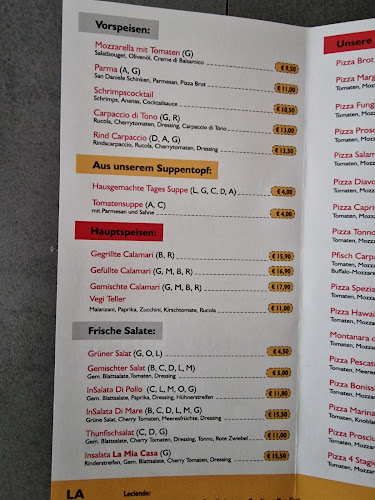 Vorspeisen:
Mozzarella mit Tomaten (G)
Salatbouget, Olivenöl, Creme di Balsamico € 9,50
Parma (A, G)
San Daniele Schinken, Parmesan, Pizza Brot € 11,00
Schrimpscocktail
Schrimps, Ananas, Cocktailsauce € 10,50
Carpaccio di Tono (G, R)
Rucola, Cherrytomaten, Dressing, Carpaccio di Tono € 13,00
Rind Carpaccio (D, A, G)
Rindscarpaccio, Rucola, Cherrytomaten, Dressing € 13,50
Aus unserem Suppentopf:
Hausgemachte Tages Suppe (L, G, C, D, A) € 4,00
Tomatensuppe (A, C)
mit Parmesan und Sahne € 4,00
Hauptspeisen:
Gegrillte Calamari (B, R) € 15,90
Gefüllte Calamari (G, M, B, R) € 16,90
Gemischte Calamari (G, M, B, R) € 17,90
Vegi Teller
Malanzani, Paprika, Zucchini, Kirschtomate, Rucola € 11,00
Frische Salate:
Grüner Salat (G, O, L) € 4,50
Gemischter Salat (B, C, D, L, M)
Gem. Blattsalate, Tomaten, Dressing € 5,00
InSalata Di Pollo (C, L, M, O, G)
Gem. Blattsalate, Paprika, Dressing, Hühnerstreifen € 11,80
InSalata Di Mare (B, D, L, M, G)
Grüner Salat, Cherry Tomaten, Meeresfrüchte, Dressing € 15,50
Thunfischsalat (C, D, G)
Gem. Blattsalat, Cherry Tomaten, Dressing, Tonno, Rote Zwiebel € 11,00
Insalata La Mia Casa (G)
Rinderstreifen, Gem. Blattsalate, Cherry Tomaten, Dressing € 15,50
LA
Leciende:
Unsere
Pizza Brot
Pizza Marg
Tomaten, Mozza
Pizza Fung
Tomaten, Mozza
Pizza Prosc
Tomaten, Mozza
Pizza Salam
Tomaten, Mozza
Pizza Diavo
Tomaten, Mozza
Pizza Capric
Tomaten, Mozza
Pizza Tonno
Tomaten, Mozza
Pfisch Carpa
Tomaten, Mozza
Buffalo-Mozzare
Pizza Spezia
Tomaten, Mozza
Pizza Hawaii
Tomaten, Mozza
Montanara
Tomaten, Mozza
Pizza Pescat
Tomaten, Meere
Pizza Boniss
Tomaten, Mozza
Pizza Marina
Tomaten, Knobla
Pizza Prosciu
Tomaten, Mozza
Pizza 4 Stagio